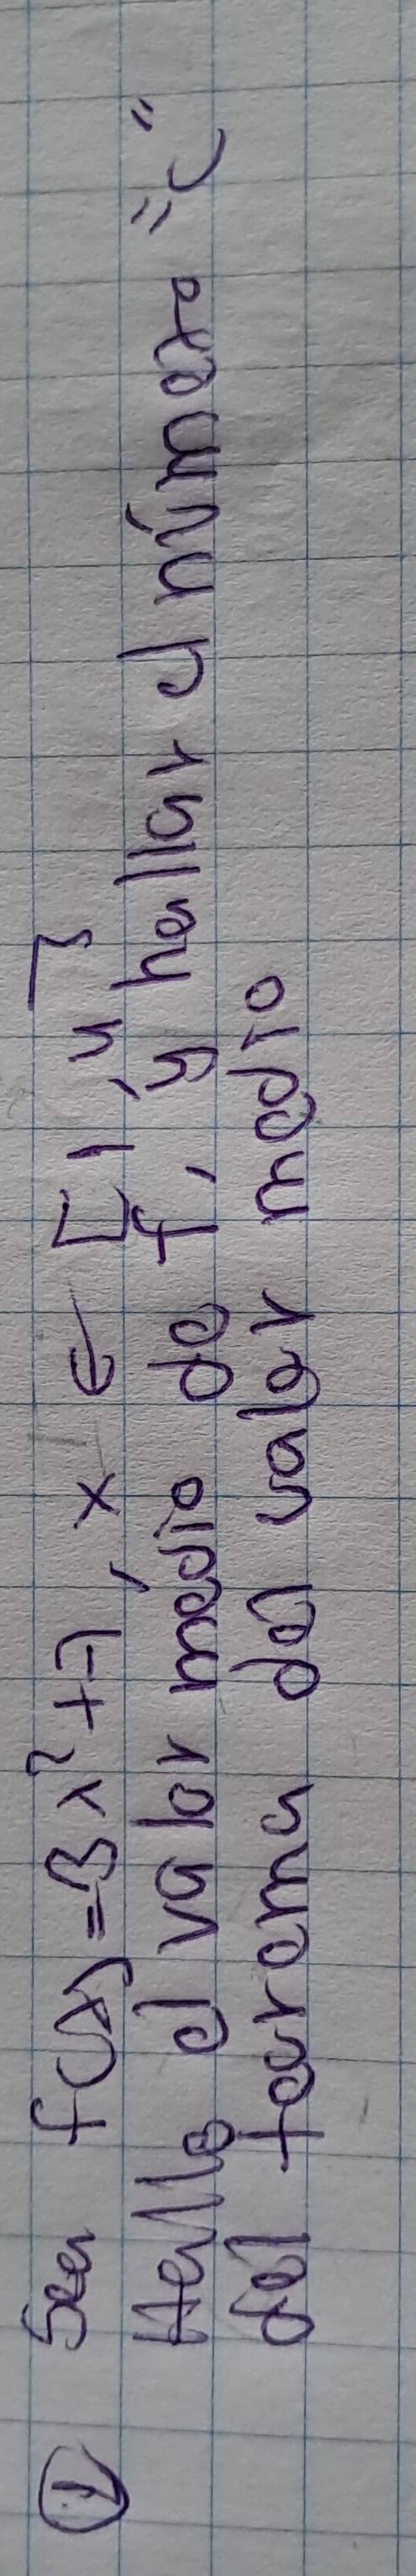 ① Sea f(x) = 3x² + 7, x ∈ [1, 4]
Halle el valor medio de f, y hallar el número "c"
del teorema del valor medio